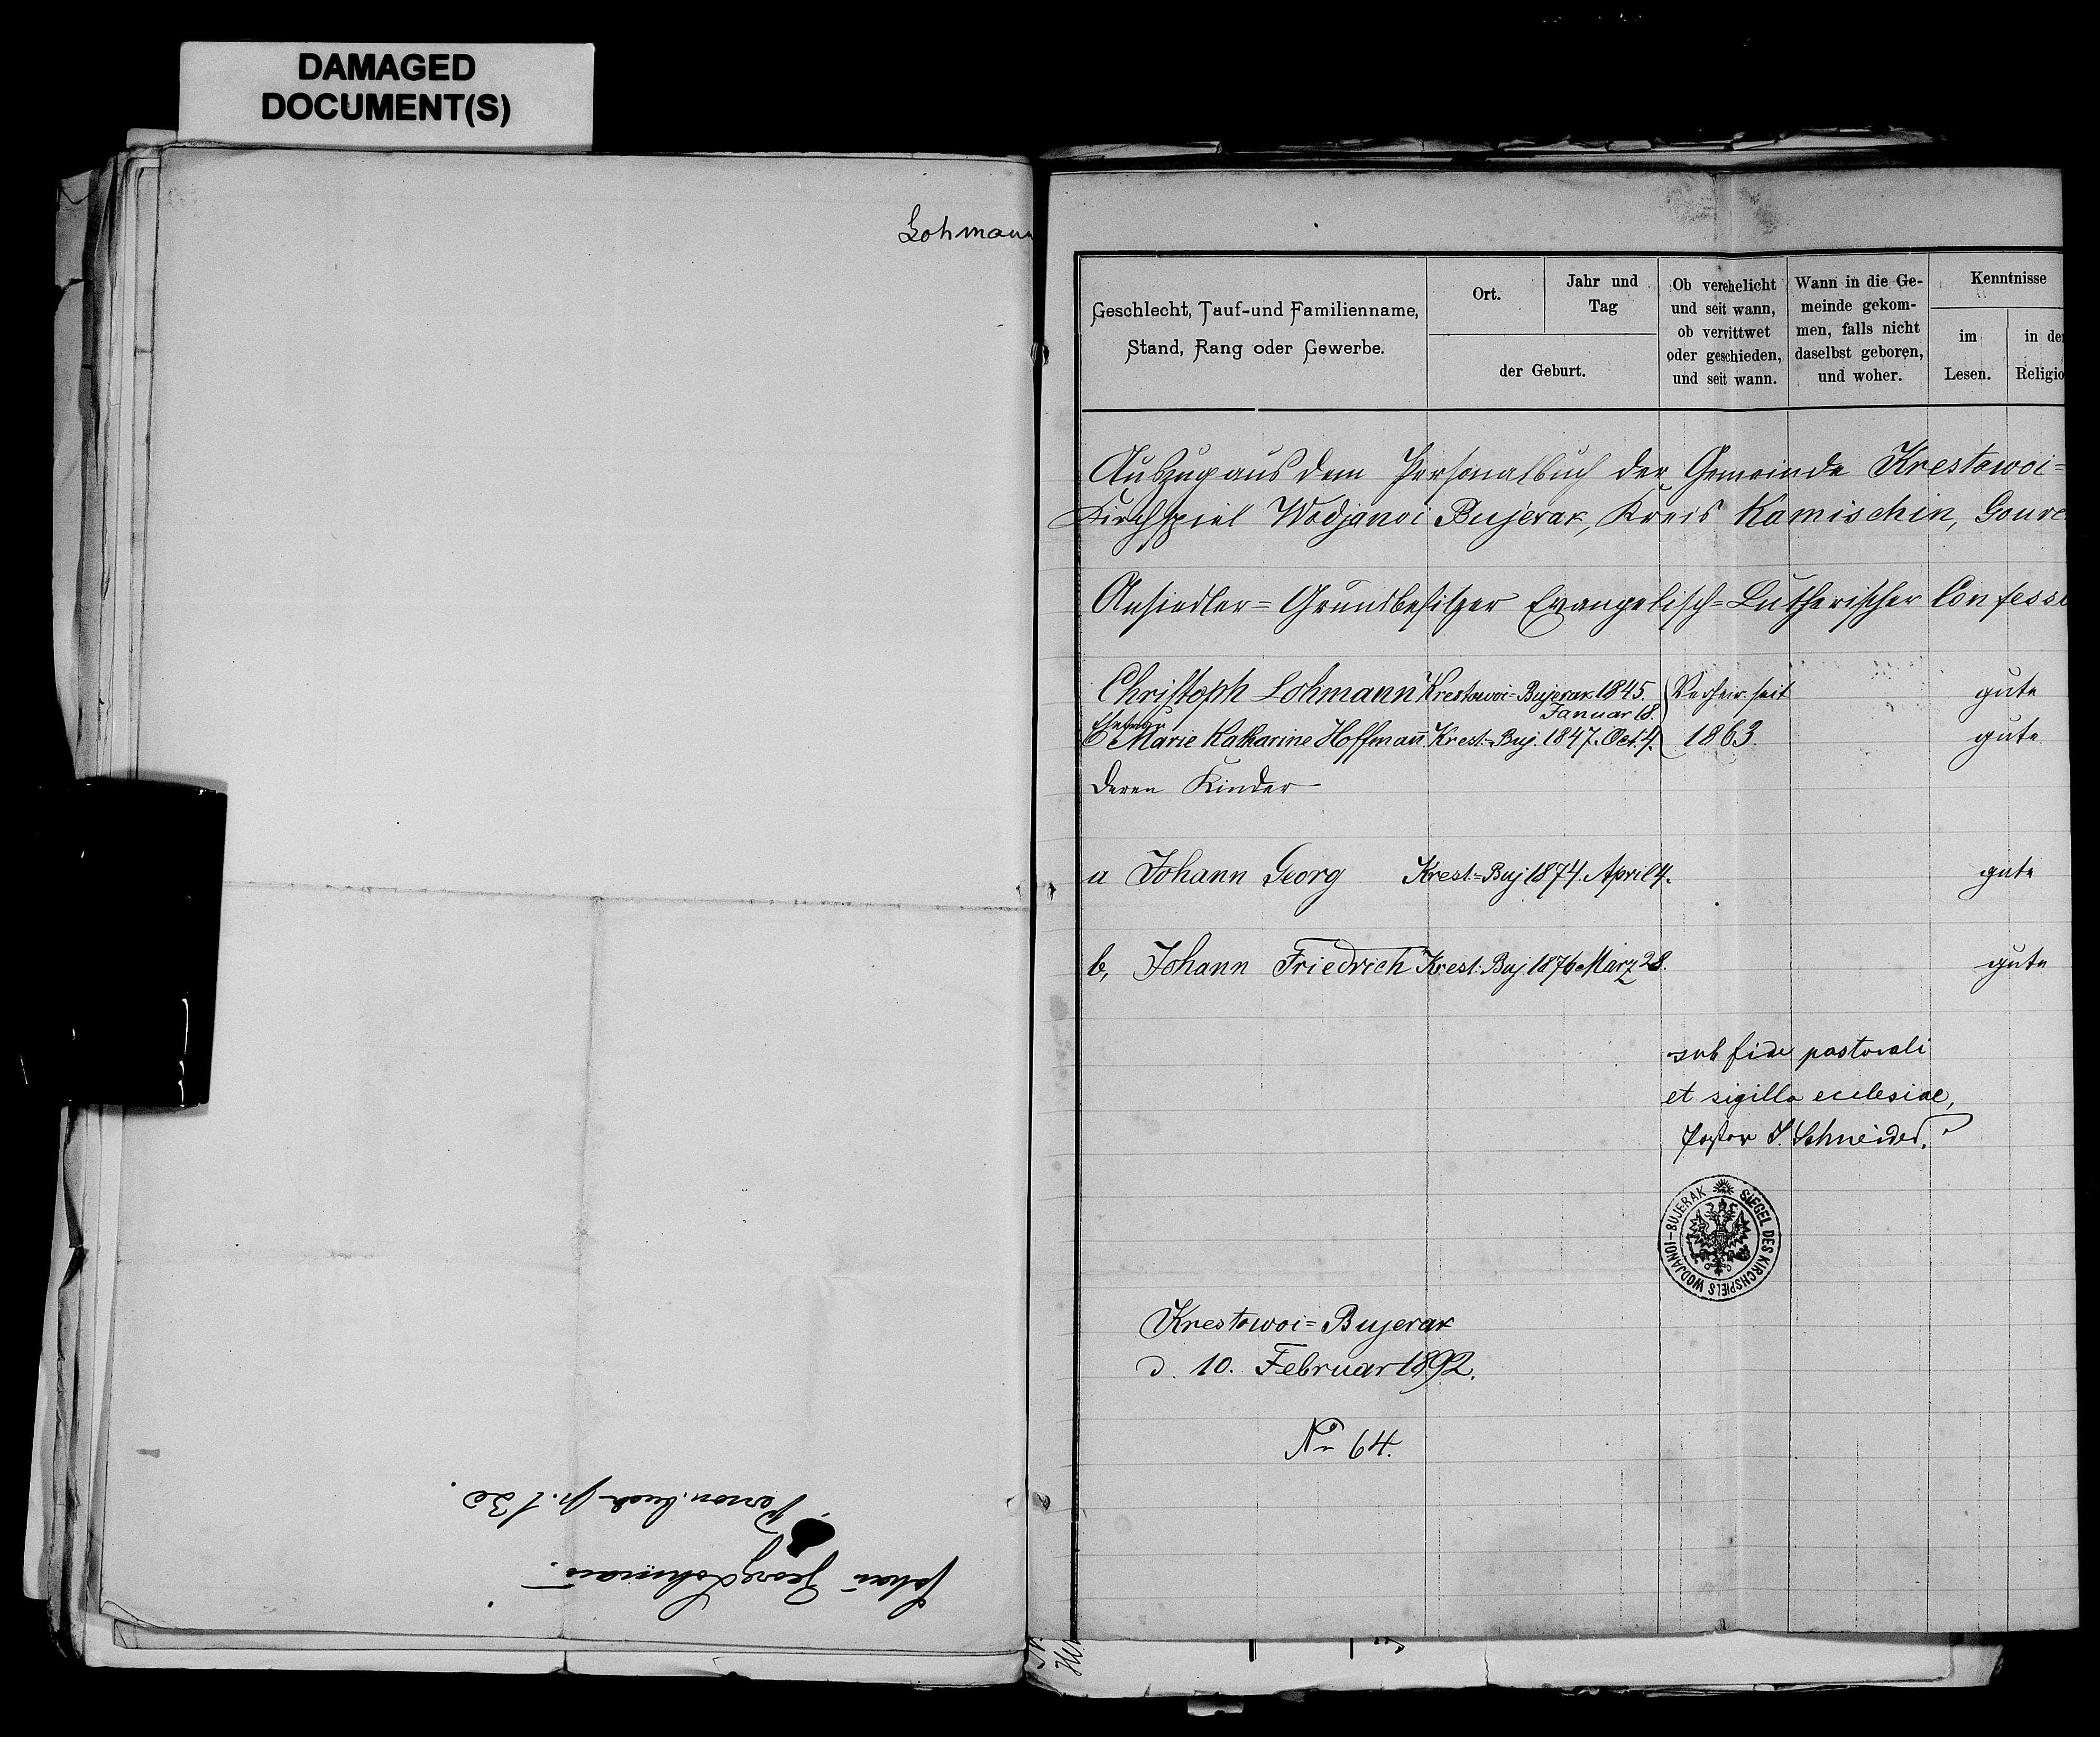 DAMAGED
DOCUMENT(S)
Lohmann
Johan̄ Georg Lohman̄.
Person.buch p. 130.
Geschlecht, Tauf-und Familienname,
Stand, Rang oder Gewerbe.
Ort.
Jahr und
Tag
der Geburt.
Ob verehelicht
und seit wann,
ob vervittwet
oder geschieden,
und seit wann.
Wann in die Ge-
meinde gekom-
men, falls nicht
daselbst geboren,
und woher.
Kenntnisse
im
Lesen.
in der
Religio
Auszug aus dem Personalbuch der Gemeinde Krestowoi=
Kirchspiel Wodjanoi Bujerak, Kreis Kamischin, Gouve
Ansiedler=Grundbesitzer Evangelisch=Lutherischer Confessi
Christoph Lohmann Krestowoi=Bujerak 1845. Januar 18. Verheir. seit gute
Ehefrau Marie Katharine Hoffman̄ Krest.=Buj. 1847. Oct. 4. 1863. gute
Deren Kinder
a Johann Georg Krest.=Buj 1874. April 4. gute
b, Johann Friedrich Krest. Buj. 1876 März 28. gute
sub fide pastorali
et sigillo ecclesiae,
Pastor J. Schneider.
SIEGEL DES KIRCHSPIELS WODJANOI-BUJERAK
Krestowoi=Bujerak
d. 10. Februar 1892.
No 64.